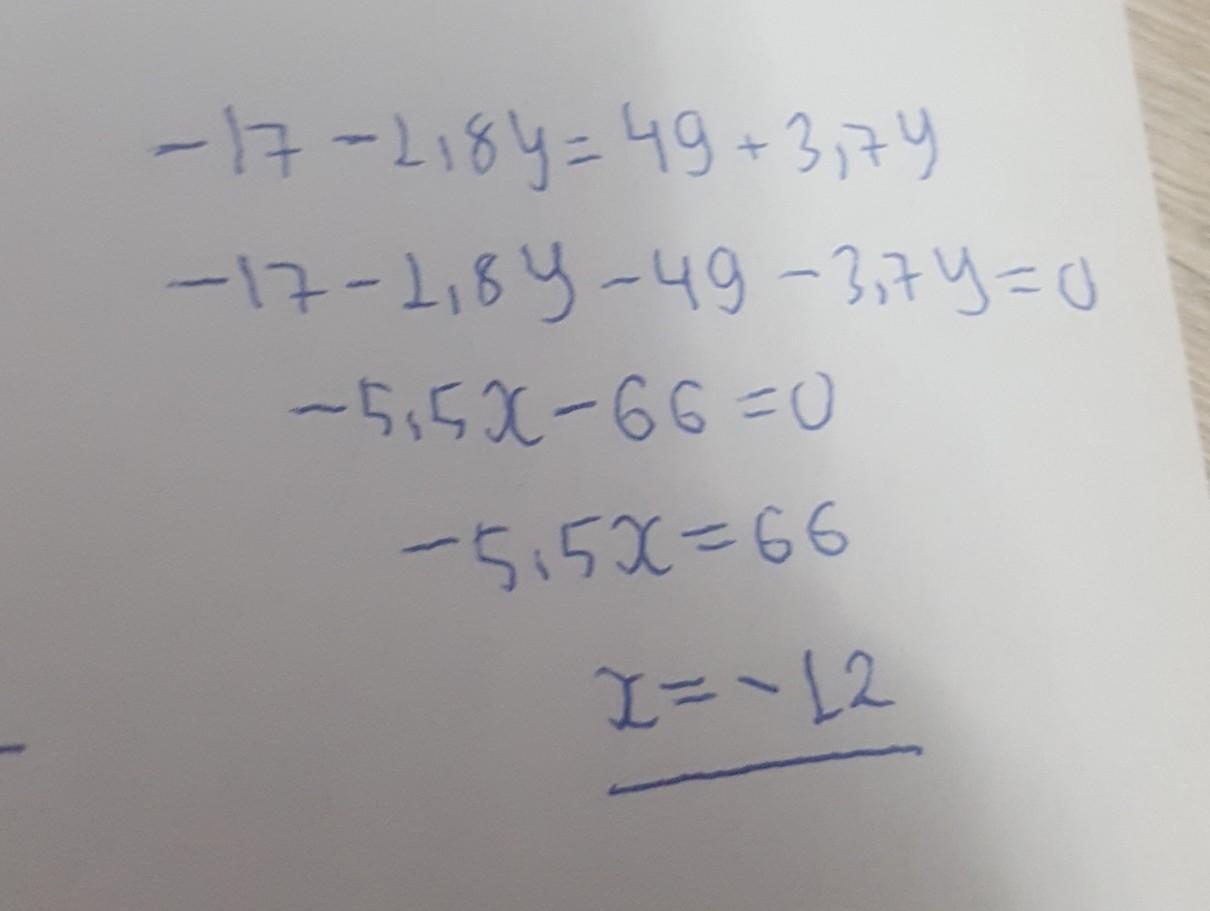 -17 - 1,8y = 49 + 3,7y
-17 - 1,8y - 49 - 3,7y = 0
-5,5x - 66 = 0
-5,5x = 66
x = -12